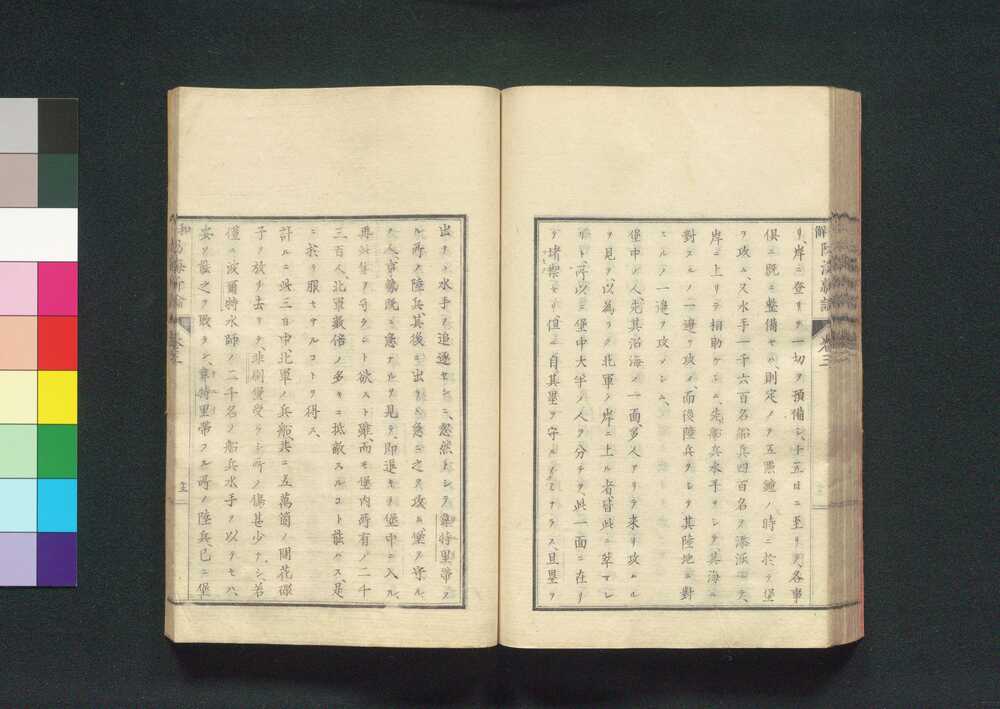 リ、岸ニ登リテ一切ヲ預備シ、十五日ニ至リテ、各事
俱ニ既ニ整備セハ、則定ノテ五點鐘ノ時ニ於テ堡
ヲ攻ム、又水手一千六百名船兵四百名ヲ添派シテ、
岸ニ上リテ相助ケシム、先船兵水手ヲシテ其海ニ
對スルノ一邊ヲ攻メ、而後陸兵ヲシテ其陸地ニ對
スルノ一邊ヲ攻メシム、
堡中ノ人、先其沿海ノ一面、多人アリテ来リ攻ムル
ヲ見テ、以為ラク北軍ノ岸ニ上ル者皆此ニ萃マレ
リト、所以ニ堡中大半ノ人ヲ分チテ、此一面ニ在リ
テ堵禦セシ、但ニ自其壘ヲ守ルノミナラス、且壘ヲ
出テヽ水手ヲ追逐セシニ、忽然トシテ韋特里帶フ
ル所ノ陸兵、其後ニ出テヽ急ニ之ヲ攻ム、堡ヲ守ル
ノ人、事勢既ニ急ナルヲ見テ、即退キテ堡中ニ入ル、
再此壘ヲ守ラント欲スト雖、而モ堡内所有ノ二千
三百人、北軍數倍ノ多キニ抵敵スルコト能ハス、是
ニ於テ服セサルコトヲ得ス、
計ルニ此三日中北軍ノ兵船、共ニ五萬箇ノ開花礮
子ヲ放チ去リテ、非削慢受ケシ所ノ傷甚少ナシ、若
僅ニ波爾特水師ノ二千名ノ船兵水手ヲ以テセハ、
安ソ能之ヲ敗ラン、韋特里帶フル所ノ陸兵已ニ堡